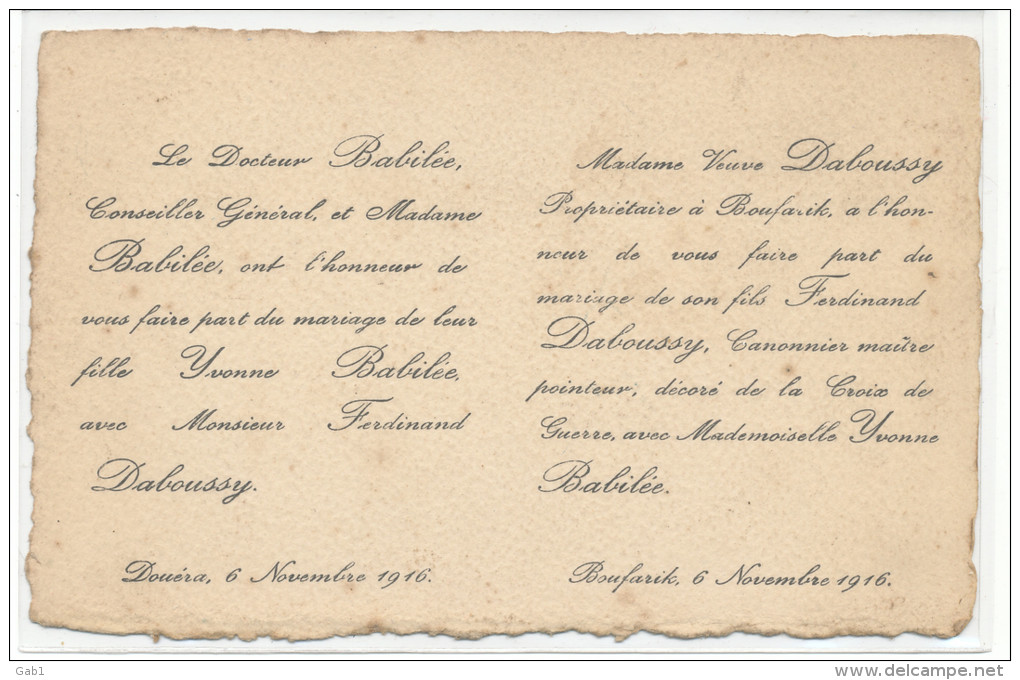 Le Docteur Babilée,
Conseiller Général, et Madame
Babilée, ont l'honneur de
vous faire part du mariage de leur
fille Yvonne Babilée,
avec Monsieur Ferdinand
Daboussy.
Douéra, 6 Novembre 1916.
Madame Veuve Daboussy
Propriétaire à Boufarik, a l'hon-
neur de vous faire part du
mariage de son fils Ferdinand
Daboussy, Canonnier maître
pointeur, décoré de la Croix de
Guerre, avec Mademoiselle Yvonne
Babilée.
Boufarik, 6 Novembre 1916.
Gab1
www.delcampe.net